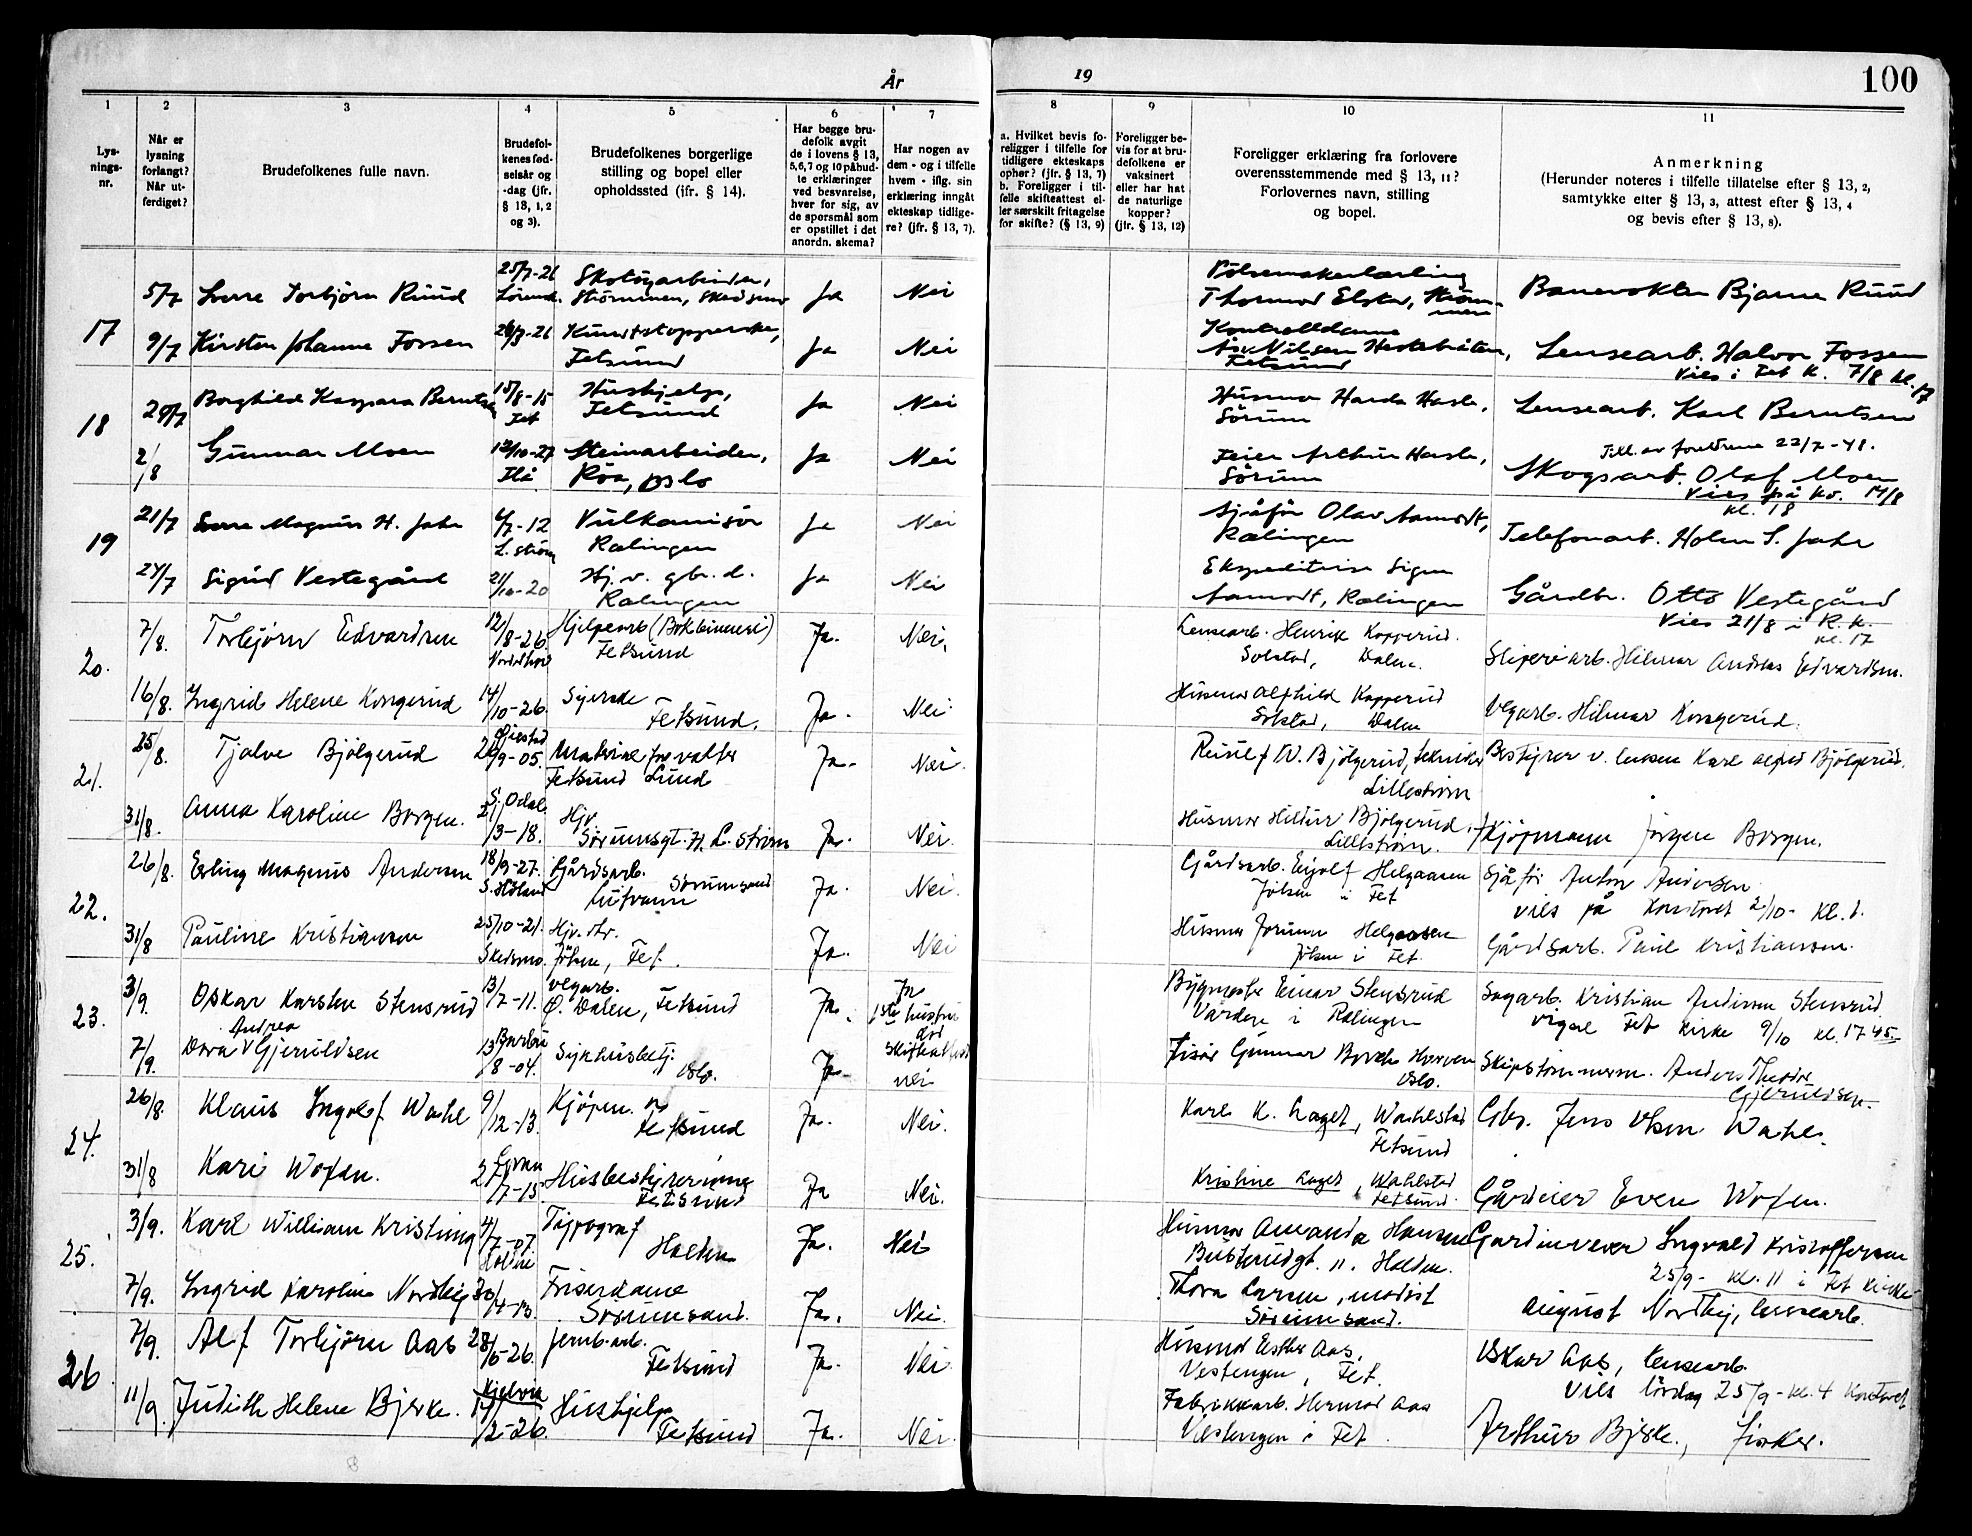 År
19
100
1
2
3
4
5
6
7
8
9
10
11
Lys-
nings-
nr.
Når er
lysning
forlangt?
Når ut-
ferdiget?
Brudefolkenes fulle navn.
Brudefol-
kenes fød-
selsår og
-dag (jfr.
§ 18, 1, 2
og 3).
Brudefolkenes borgerlige
stilling og bopel eller
opholdssted (jfr. § 14).
Har begge bru-
defolk avgit
de i lovens § 13,
5,6,7 og 10 påbud-
te erklæringer
ved besvarelse,
hver for sig, av
de spørsmål som
er opstillet i det
anordn. skema?
Har nogen av
dem - og i tilfelle
hvem - iflg. sin
erklæring inngåt
ekteskap tidlige-
re? (jfr. § 13, 7).
a. Hvilket bevis fo-
religger i tilfelle for
tidligere ekteskaps
ophør? (jfr. § 13, 7)
b. Foreligger i til-
felle skifteattest el-
ler særskilt fritagelse
for skifte? (§ 13, 9)
Foreligger be-
vis for at bru-
defolkene er
vaksinert
eller har hat
de naturlige
kopper?
(jfr. § 13, 12)
Foreligger erklæring fra forlovere
overensstemmende med § 13, 11?
Forlovernes navn, stilling
og bopel.
Anmerkning
(Herunder noteres i tilfelle tillatelse efter § 13, 2,
samtykke efter § 13, 3, attest efter § 13, 4
og bevis efter § 13, 8).
17
5/7 Sverre Torbjörn Ruud 25/7-26 Skotöyarbeider, Strömmen, Skedsmo Ja Nei Thormod Elster, Ström-men Banevokter Bjarne Ruud
9/7 Kirsten Johanne Fossen 26/3-26 Kunststopperske, Fetsund Ja Nei Kontrolldame Åse Nilsen Heksebråten, Fetsund Lensearb. Halvor Fossen
Vies i Fet K. 7/8 kl. 17
18
29/7 Borghild Kaspara Berntsen 15/8-15 Fet Hushjelp, Fetsund Ja Nei Husmor Harda Hasle, Sörum Lensearb. Karl Berntsen
2/8 Gunnar Moen 12/10-27 Steinarbeider, Röa, Oslo Ja Nei Feier Arthur Hasle, Sörum Till. av foreldrene 22/7-48.
Skogsarb. Olaf Moen
Vies på ko. 14/8
kl. 18
19
21/7 Sverre Magnus H. Jahr 4/7-12 L.ström Vulkanisör Rælingen Ja Nei Sjåför Olav Aamodt, Rælingen Telefonarb. Holm S. Jahr
24/7 Sigrid Vestegård 21/10-20 Hj. v. gbr. d. Rælingen Ja Nei Ekspeditrise Signe Aamodt, Rælingen Gårdbr. Otto Vestegård
Vies 21/8 i R.k.
kl. 17
20.
7/8. Torbjørn Edvardsen 12/8-26. Hjelpearb (Bokbinneri) Fetsund Ja. Nei. Lensearb. Henrik Kopperud. Solstad, Dalen. Sliperiarb. Hilmar Andreas Edvardsen.
16/8. Ingrid Helene Kongerud 14/10-26. Syerske Fetsund. Ja. Nei Husmor Alfhild Kopperud Solstad, Dalen Vegarb. Hilmar Kongerud.
21.
25/8. Tjalve Bjölgerud 9-05. Materialforvalter Fetsund Lund Ja. Nei. W. Bjölgerud, tekniker Lilleström Bestyrer v. lensen Karl Alfred Bjölgerud.
31/8. Anna Karoline Borgen. S. Odal 3-18. Hjv. Sørumsgt. L.strøm Ja. Nei. Husmor Hildur Bjölgerud, Lillestrøm. Kjøpmann Jørgen Borgen.
22.
26/8. Erling Magnus Andersen 18/9-27. S. Höland Gårdsarb. Sørumsand Ja. Nei. Gårdsarb. Eyolf Helgaasen Jölsen i Fet Sjåför Anton Andersen
vies på Kontoret 2/10- kl. 1.
31/8 Pauline Kristiansen 25/10-21. Skedsmo. Hjv. dtr. Jölsen, Fet. Ja. Nei Husmor Jorunn Helgaasen Jölsen i Fet. Gårdsarb. Paul Kristiansen.
23.
3/9. Oskar Karsten Stensrud 13/7-11. Vegarb. Ö. Dalen, Fetsund Ja. Ja 1ste hustru död Skifteattest Bygmester Einar Stensrud Varden i Rælingen Sagarb. Kristian Andersen Stensrud.
vigsel Fet kirke 9/10 kl. 17 45.
7/9. Dora Andrea Gjeruldsen 13/8-04. Sykhusbetj. Oslo. Ja. nei Gunnar Oslo. Skipstømmerm. Anders Theodor Gjeruldsen.
24.
26/8. Klaus Ingolf Wahl 9/12-13. Kjöpm. Fetsund Ja. Nei. Karl K. Laget, Wahlstad Fetsund Gbr. Jens Olsen Wahl.
31/8 Kari Wofen. 27/7-15 Husbestyrerinne Fetsund Ja Nei. Kristine Laget, Wahlstad Fetsund. Gårdeier Even Wofen.
25.
3/9. Karl William Kristing 4/7-07 Typograf Halden Ja. Nei Husmor Amanda Hansen Halden. Gardinvever Ingvald Kristoffersen
25/9- kl. 11 i Fet kirke
7/9. Ingrid Karoline Nordhej 30/4-13. Friserdame Sørumsand. Ja. Nei. Thora Larsen, modist Sørumsand. August Nordhej, lensearb.
26
7/9. Alf Torbjørn Aas 28/5-26. Jernb.arb. Fetsund Ja. Nei Husmor Esther Aas, Vestengen, Fet. Oskar Aas, lensearb.
Vies lördag 25/9-kl. 4 Kontoret
11/9. Judith Helene Bjerke. 2-26. Hushjelp Fetsund Ja. Nei. Fabrikkarb. Hermod Aas Vestengen i Fet. Arthur Bjerke, fisker.